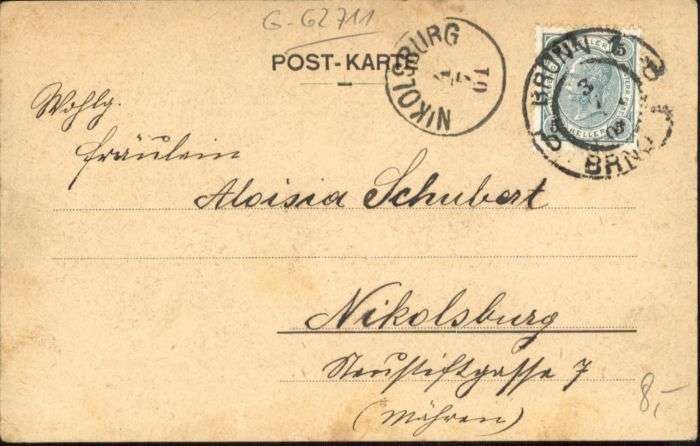 G-G2711
POST-KARTE
NIKOLSBURG
BRÜNN
BRNO
5 5
HELLER
Wohlg.
Fräulein
Aloisia Schubert
Nikolsburg
Neustiftgasse 7
(Mähren)
8,-